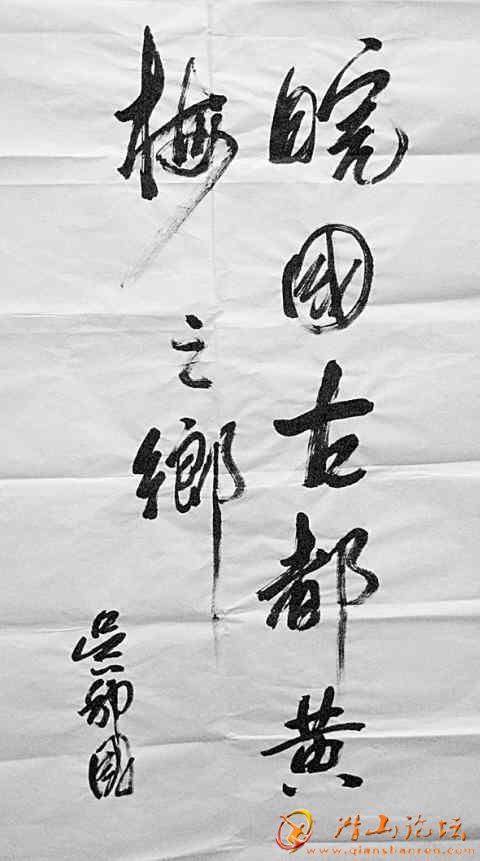 皖國古都黄
梅之鄉
吴邦國
潜山论坛
www.qianshanren.com